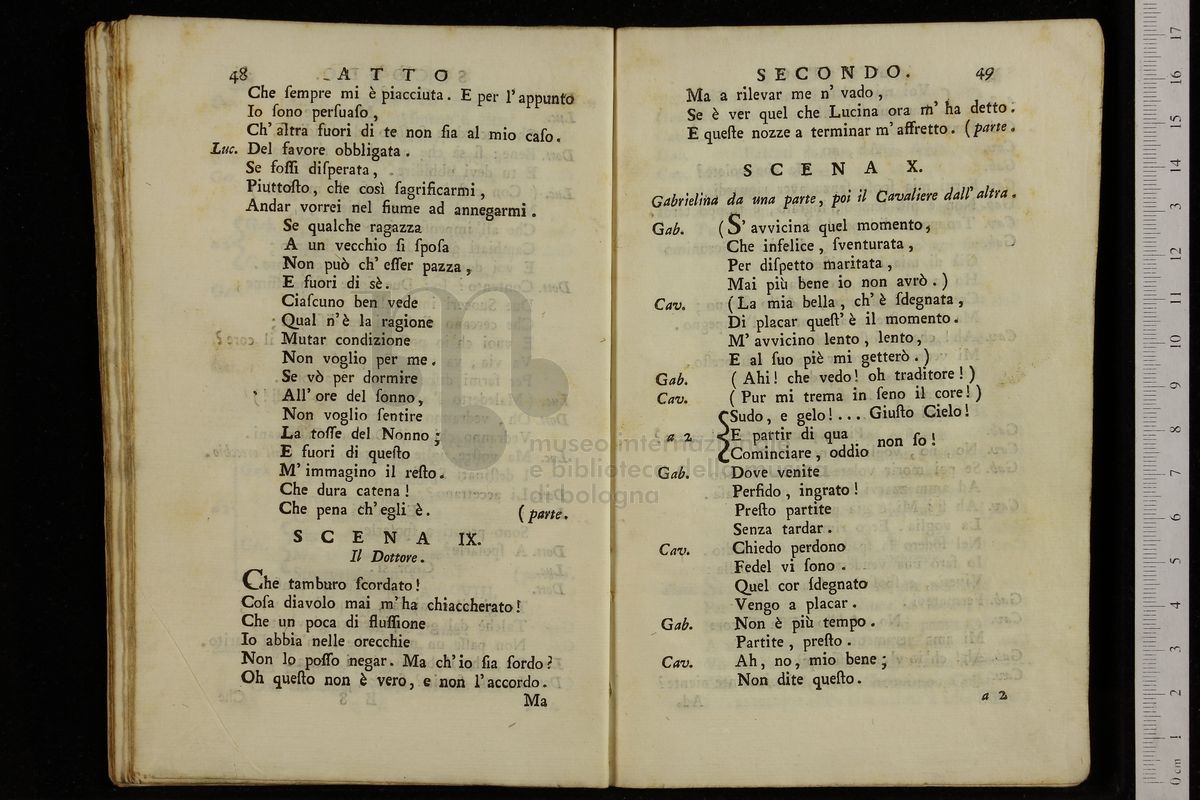 48 ATTO
Che ſempre mi è piacciuta. E per l'appunto
Io ſono perſuaſo,
Ch'altra fuori di te non ſia al mio caſo.
Luc. Del favore obbligata.
Se foſſi diſperata,
Piuttoſto, che così ſagrificarmi,
Andar vorrei nel fiume ad annegarmi.
Se qualche ragazza
A un vecchio ſi ſpoſa
Non può ch'eſſer pazza,
E fuori di sè.
Ciaſcuno ben vede
Qual n'è la ragione
Mutar condizione
Non voglio per me.
Se vò per dormire
All'ore del ſonno,
Non voglio ſentire
La toſſe del Nonno;
E fuori di queſto
M'immagino il reſto.
Che dura catena!
Che pena ch'egli è. (parte.
SCENA IX.
Il Dottore.
Che tamburo ſcordato!
Coſa diavolo mai m'ha chiaccherato!
Che un poca di fluſſione
Io abbia nelle orecchie
Non lo poſſo negar. Ma ch'io ſia ſordo?
Oh queſto non è vero, e non l'accordo.
Ma
SECONDO. 49
Ma a rilevar me n'vado,
Se è ver quel che Lucina ora m'ha detto.
E queſte nozze a terminar m'affretto. (parte.
SCENA X.
Gabrielina da una parte, poi il Cavaliere dall'altra.
Gab. (S'avvicina quel momento,
Che infelice, ſventurata,
Per diſpetto maritata,
Mai più bene io non avrò.)
Cav. (La mia bella, ch'è ſdegnata,
Di placar queſt'è il momento.
M'avvicino lento, lento,
E al ſuo piè mi getterò.)
Gab. (Ahi! che vedo! oh traditore!)
Cav. (Pur mi trema in ſeno il core!)
Sudo, e gelo!... Giuſto Cielo!
a 2 E partir di qua non ſo!
Cominciare, oddio
Gab. Dove venite
Perfido, ingrato!
Preſto partite
Senza tardar.
Cav. Chiedo perdono
Fedel vi ſono.
Quel cor ſdegnato
Vengo a placar.
Gab. Non è più tempo.
Partite, preſto.
Cav. Ah, no, mio bene;
Non dite queſto.
a 2
museo internazionale
e biblioteca della musica
di bologna